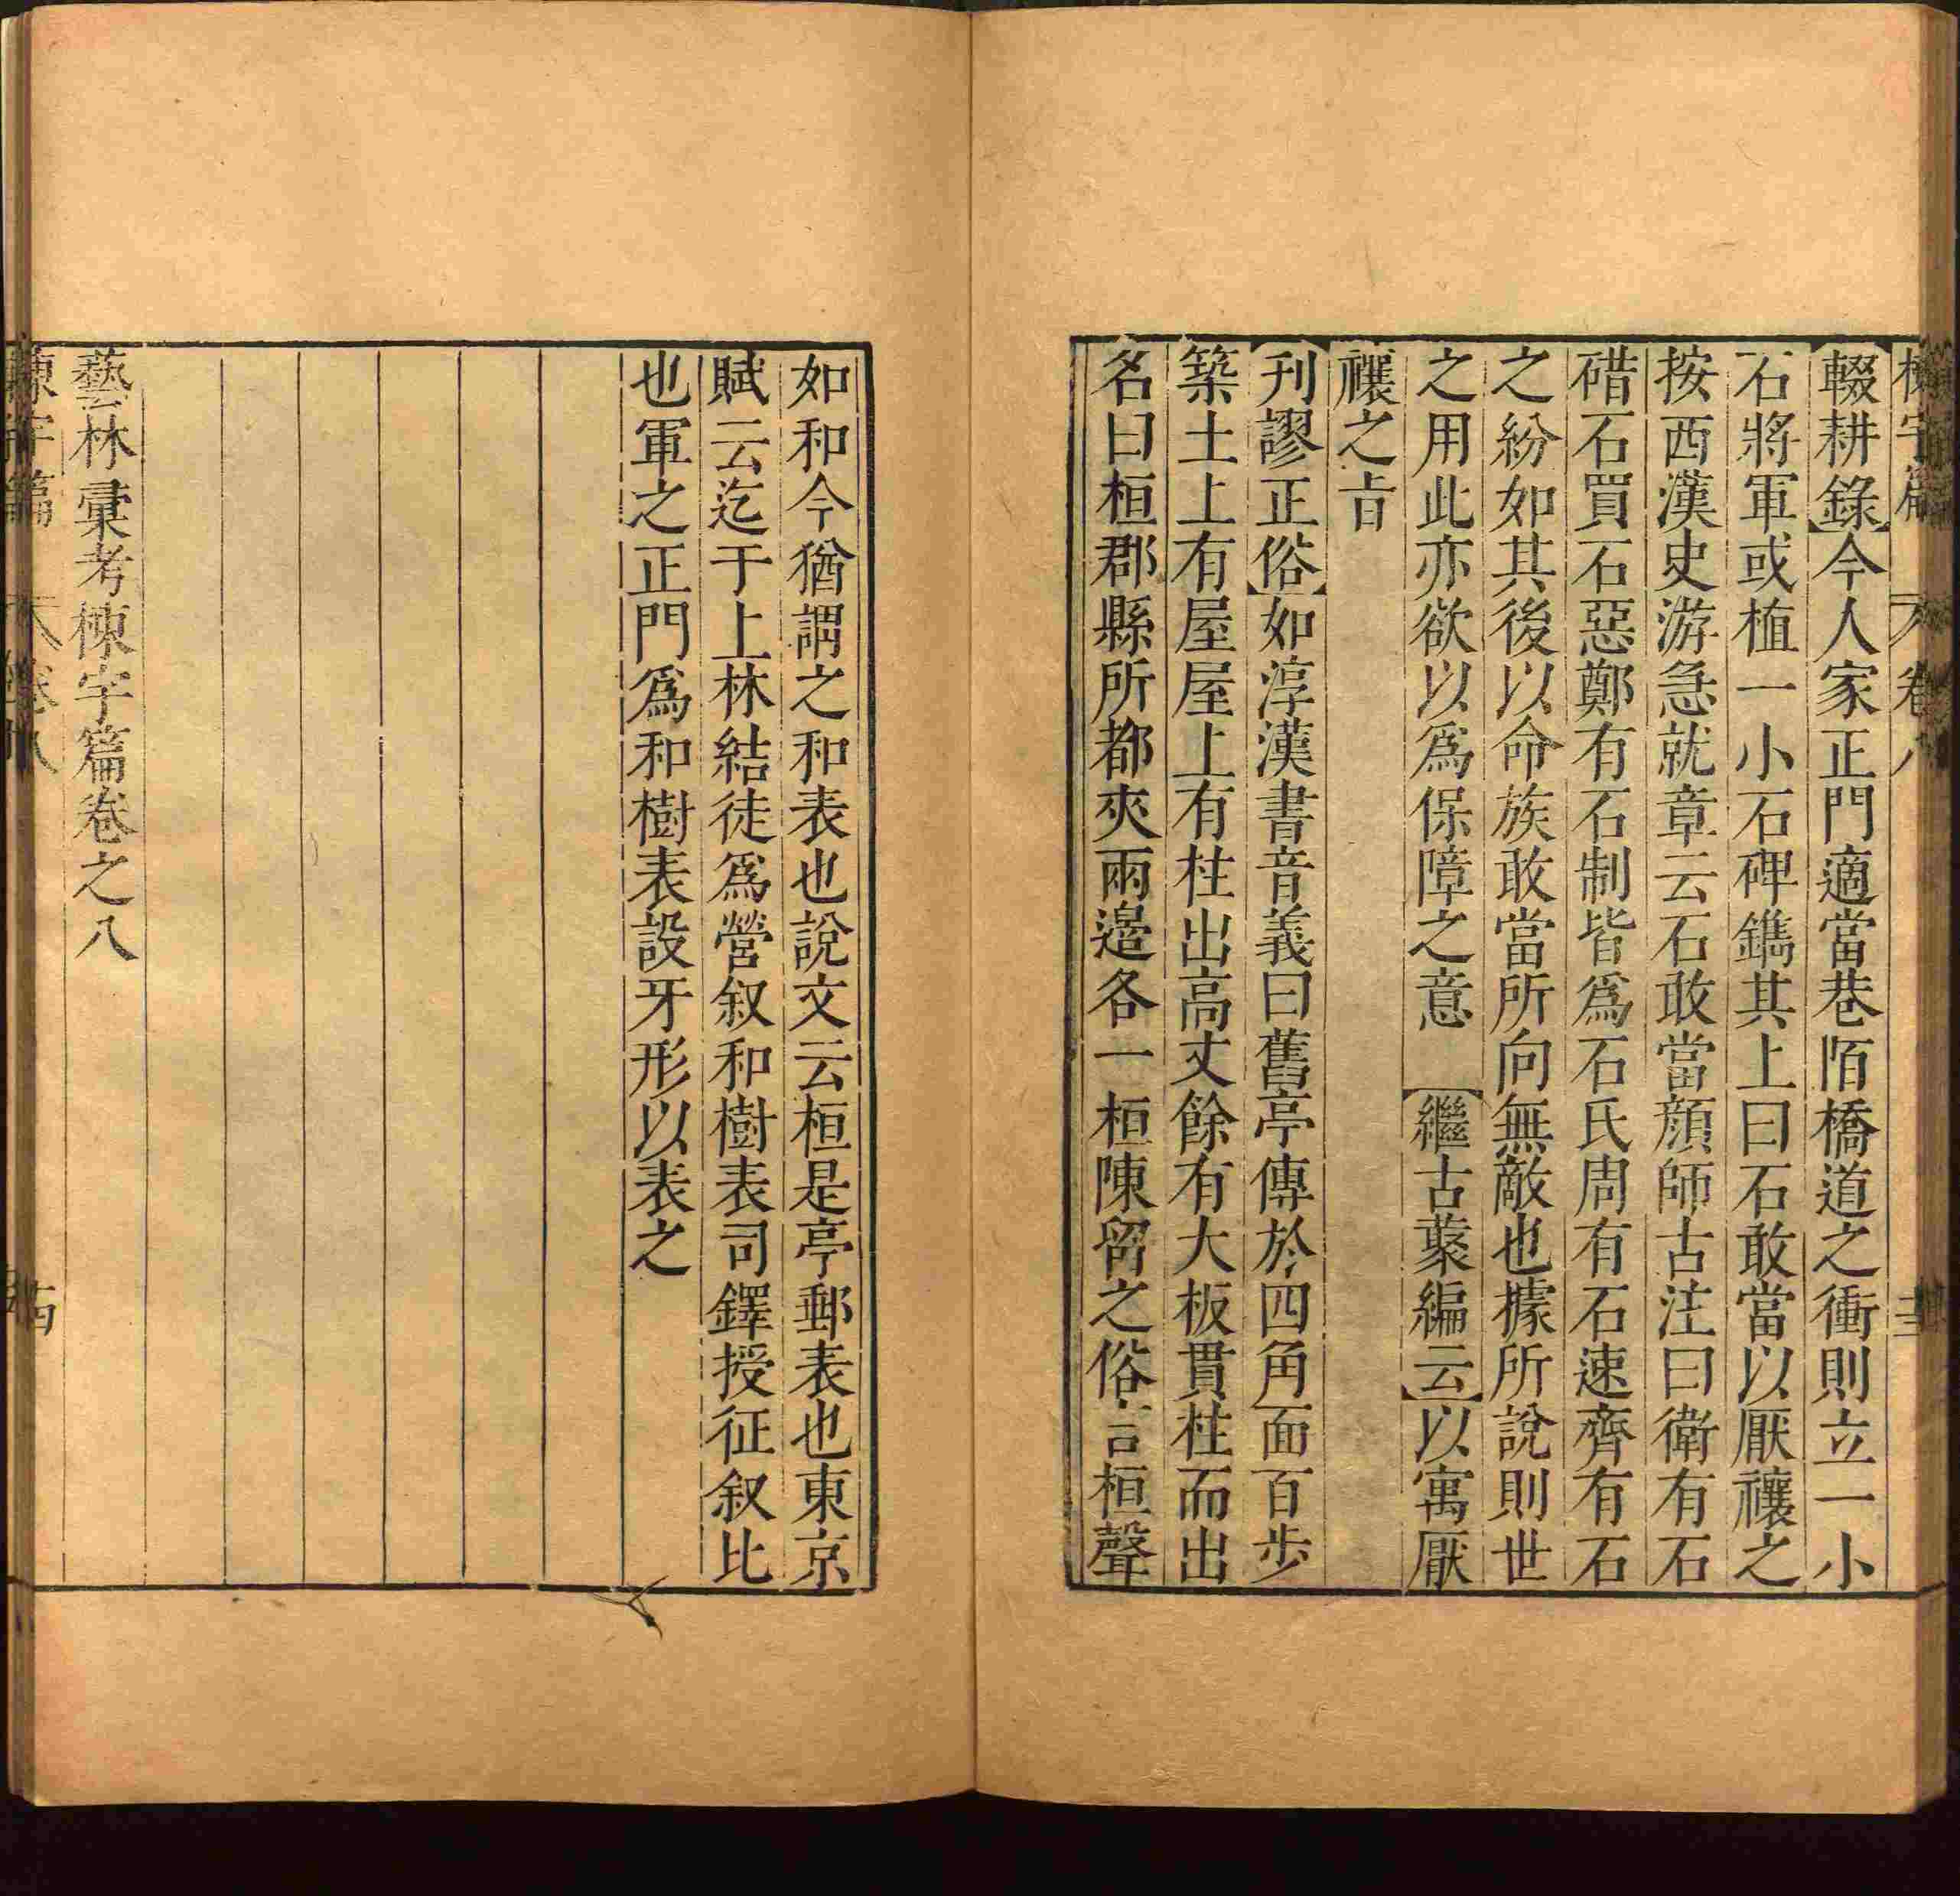 輟耕錄今人家正門適當巷陌橋道之衝則立一小
石將軍或植一小石碑鐫其上曰石敢當以厭禳之
按西漢史游急就章云石敢當顔師古注曰衛有石
碏石買石惡鄭有石制皆爲石氏周有石速齊有石
之紛如其後以命族敢當所向無敵也據所說則世
之用此亦欲以爲保障之意　繼古藂編云以寓厭
禳之㫖
刊謬正俗如淳漢書音義曰舊亭傳於四角面百步
築土上有屋屋上有柱出高丈餘有大板貫柱而出
名曰桓郡縣所都夾兩邉各一桓陳留之俗言桓聲
如和今猶謂之和表也說文云桓是亭郵表也東京
賦云迄于上林結徒爲營叙和樹表司鐸授征叙比
也軍之正門爲和樹表設牙形以表之
藝林彙考棟宇篇卷之八